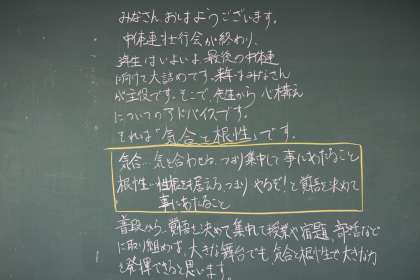 みなさん おはようございます。
中体連壮行会が終わり、
3年生はいよいよ最後の中体連
に向けて大詰めです。来年はみなさん
が主役です。そこで、先生から心構え
についてのアドバイスです。
それは「気合と根性」です。
気合…気を合わせる。つまり集中して事にあたること
根性…性根を据える。つまり やるぞ!と覚悟を決めて
事にあたること
普段から、覚悟を決めて集中して授業や宿題、部活などに
取り組めば、大きな舞台でも、気合と根性で大きな力
を発揮できると思います。